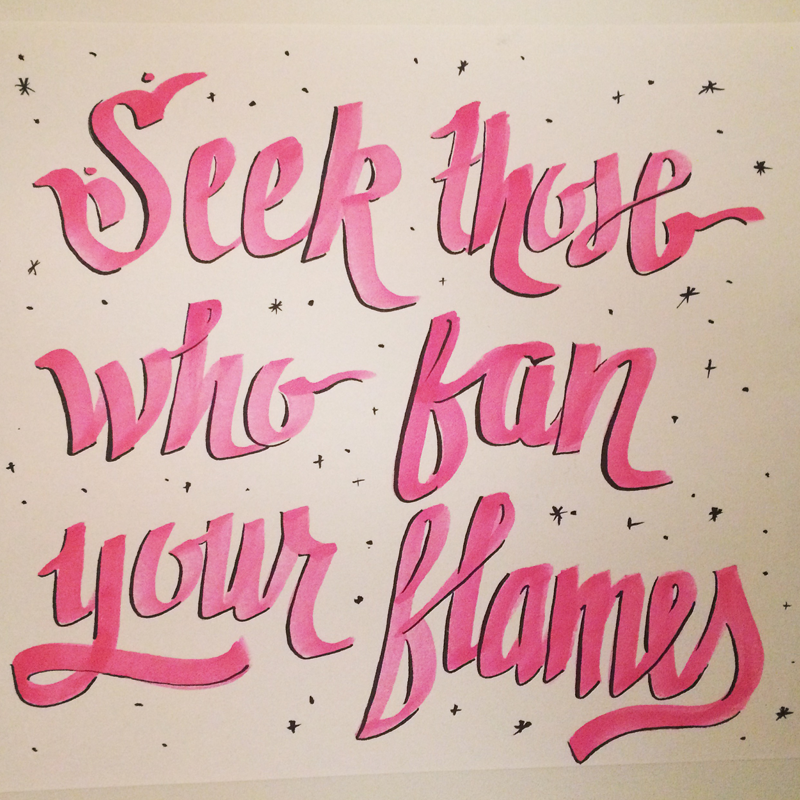 Seek those
who fan
your flames